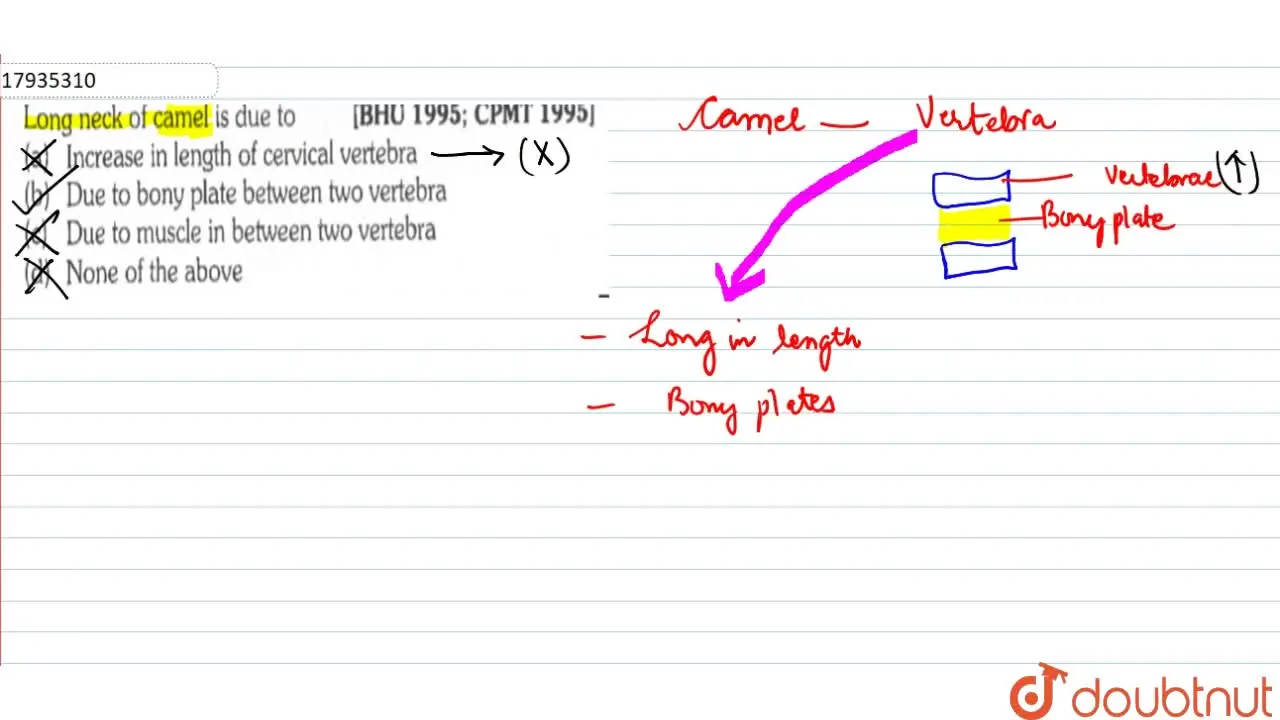 17935310
Long neck of camel is due to [BHU 1995; CPMT 1995]
(a) Increase in length of cervical vertebra → (X)
(b) Due to bony plate between two vertebra
(c) Due to muscle in between two vertebra
(d) None of the above
Camel — Vertebra
Vertebrae (↑)
Bony plate
- Long in length
- Bony plates
doubtnut